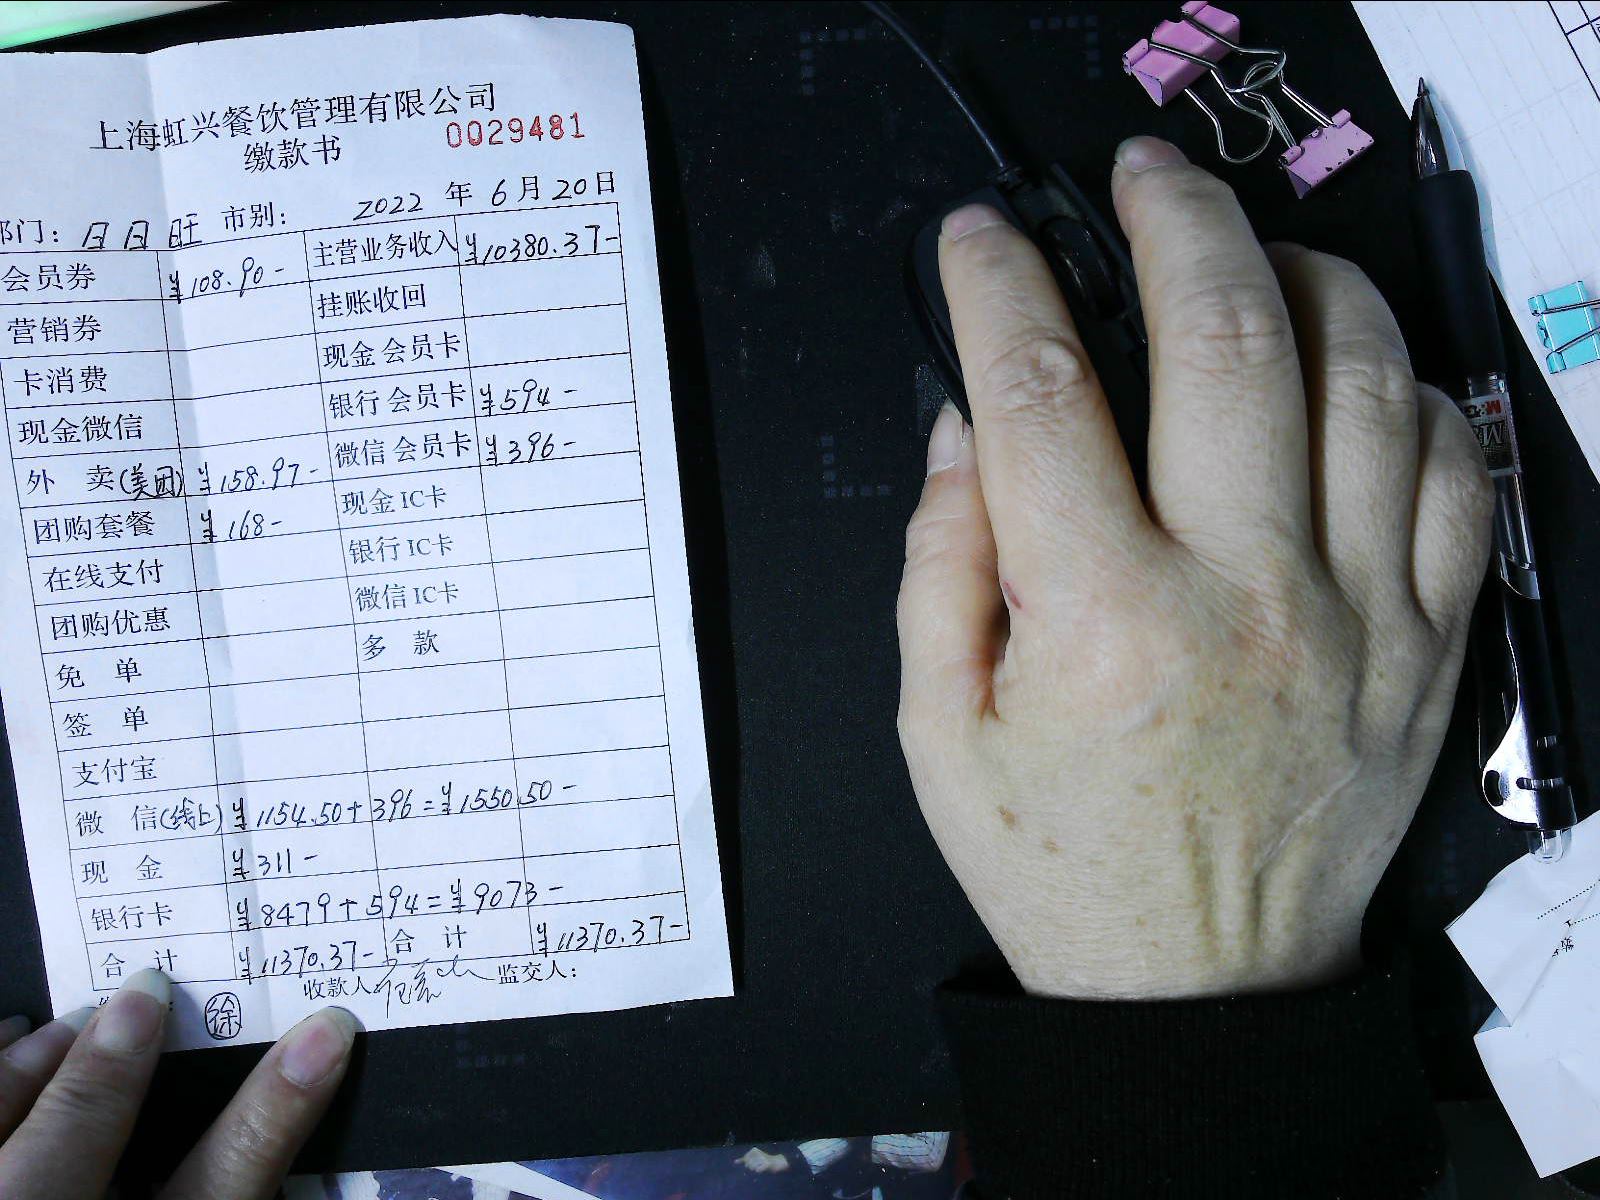 上海虹兴餐饮管理有限公司
缴款书 0029481
部门：日日旺 市别： 2022年6月20日
会员券 ¥108.90- 主营业务收入 ¥10380.37-
营销券 挂账收回
卡消费 现金会员卡
现金微信 银行会员卡 ¥594-
外 卖(美团) ¥158.97- 微信会员卡 ¥396-
团购套餐 ¥168- 现金IC卡
在线支付 银行IC卡
团购优惠 微信IC卡
免 单 多 款
签 单
支付宝
微 信(线上) ¥1154.50+396=¥1550.50-
现 金 ¥311-
银行卡 ¥8479+594=¥9073-
合 计 ¥11370.37- 合 计 ¥11370.37-
徐 收款人 监交人：